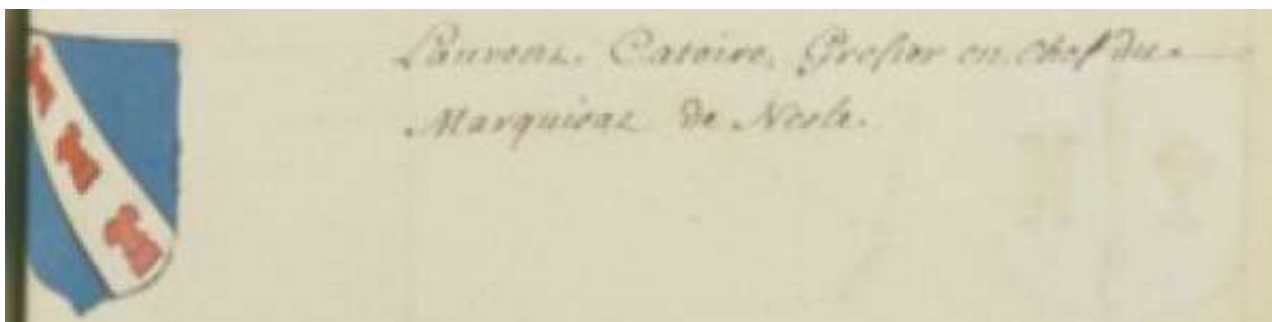 Laurens. Catoire, Grefier en chef du
Marquisat de Nesle.